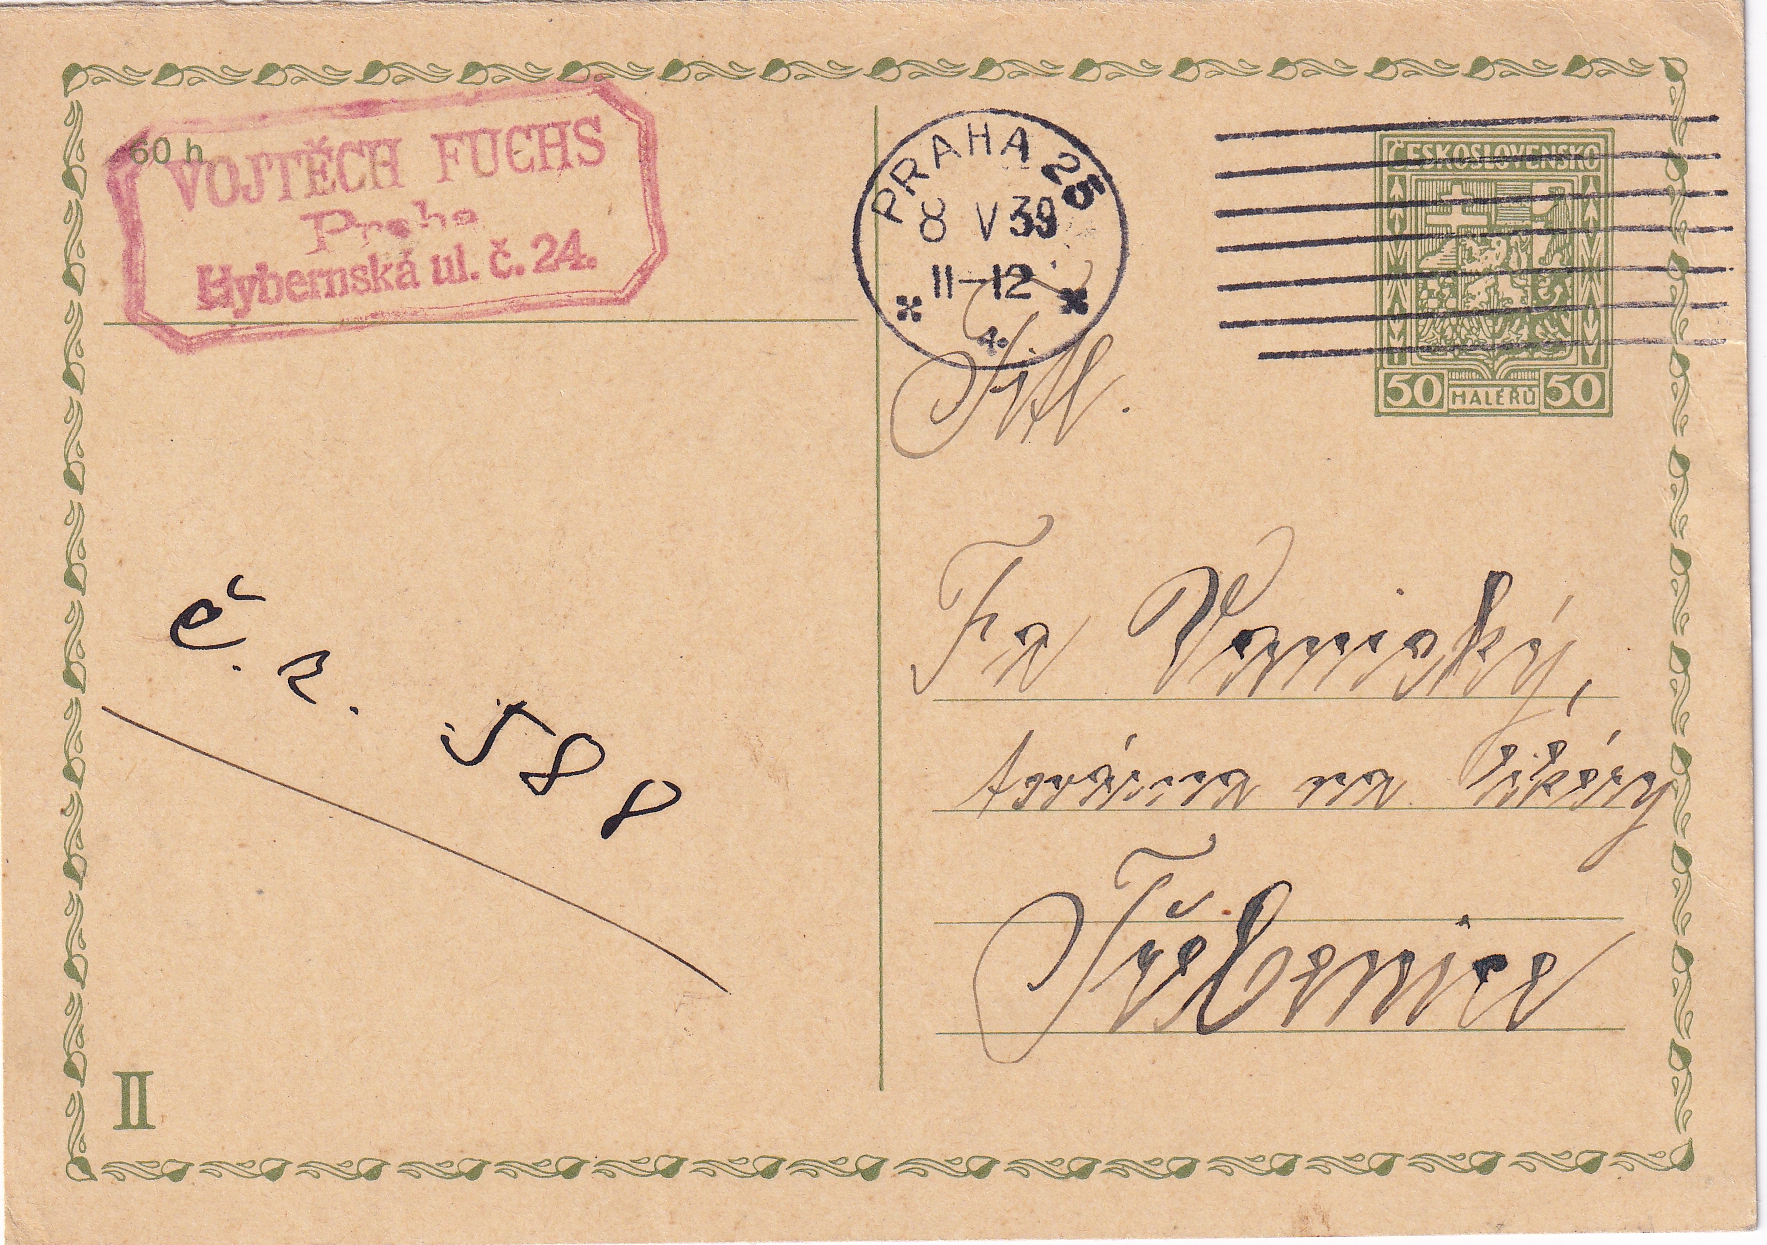 60 h
VOJTĚCH FUCHS
Praha
Hybernská ul. č. 24.
PRAHA 25
8 V 39
11-12
4.
ČESKOSLOVENSKO
50 HALÉŘŮ 50
Titl.
Fa Vanický,
továrna na likéry
Třebenice
č. 2. 588
II